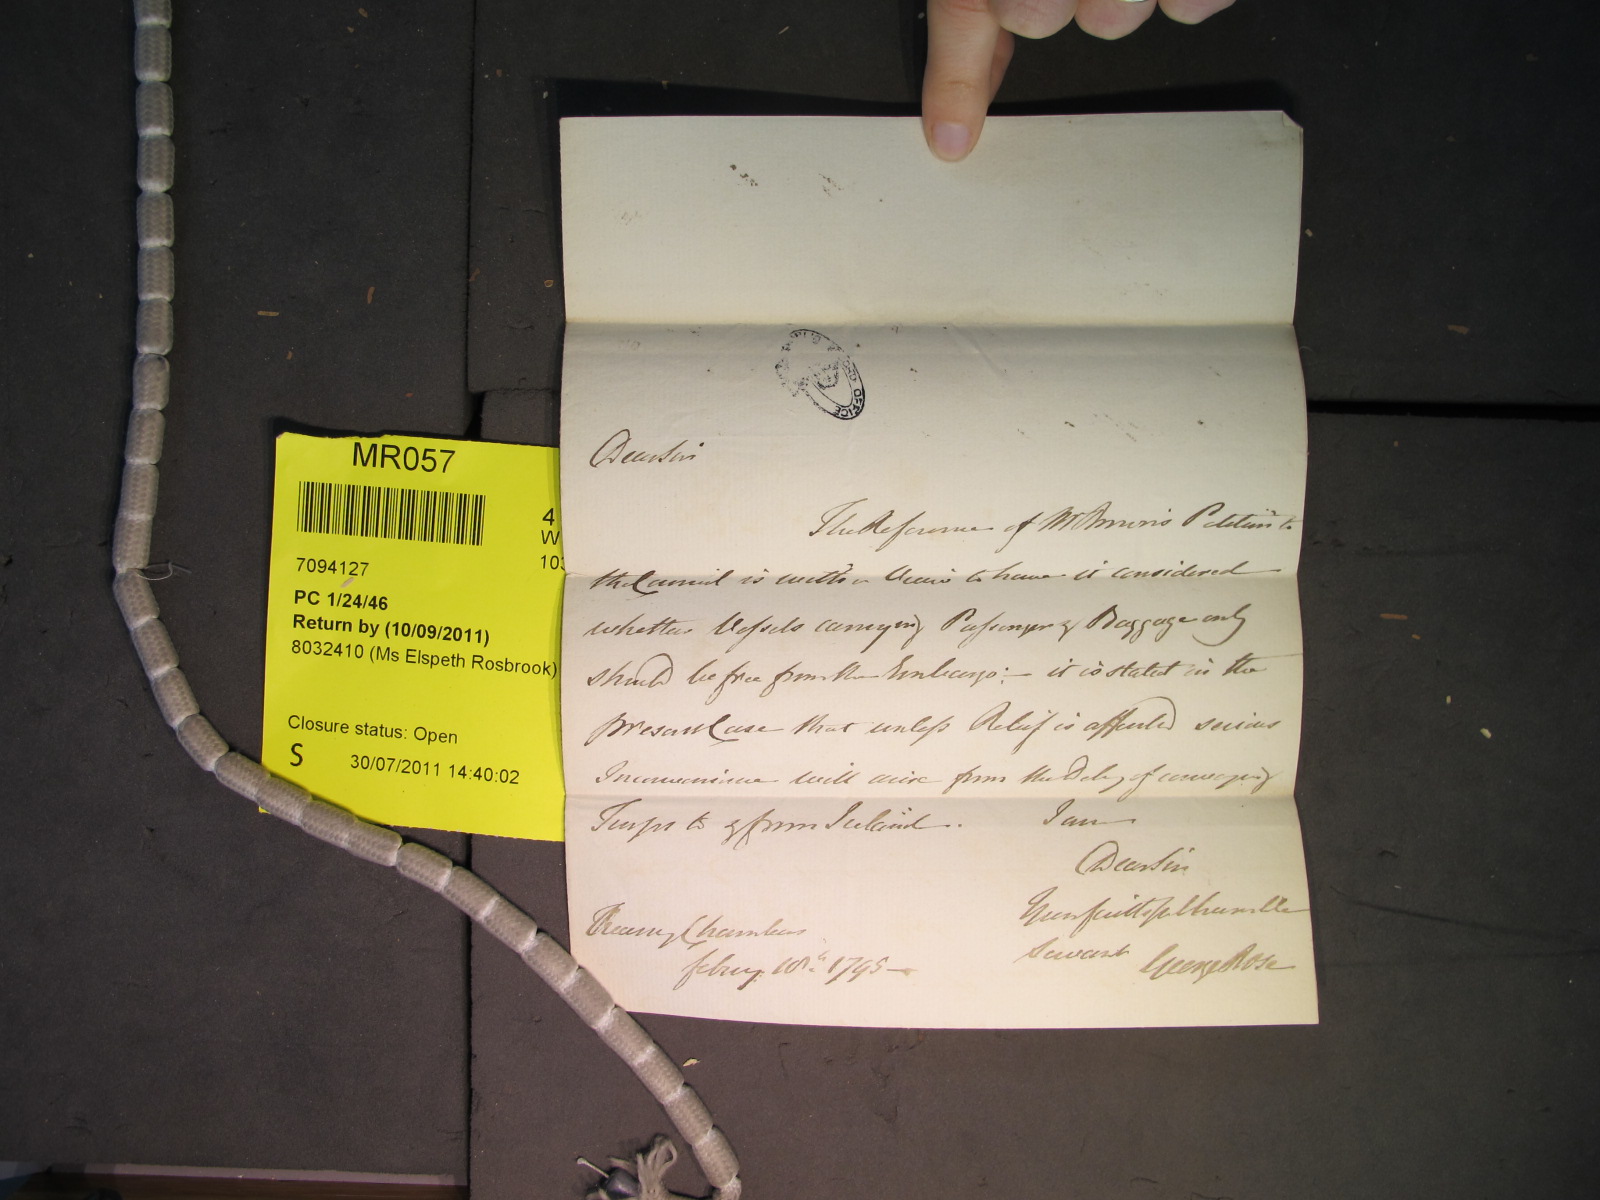 MR057
4
W
103
7094127
PC 1/24/46
Return by (10/09/2011)
8032410 (Ms Elspeth Rosbrook)
Closure status: Open
S 30/07/2011 14:40:02
OFFICE
Dear Sir
The Reference of Mr Petition to
the Council is with a View to have it considered
whether Vessels carrying Passengers & Baggage only
should be free from the Embargo:— it is stated in the
present Case that unless Relief is afforded serious
Inconvenience will arise from the Delay of conveying
Troops to & from Ireland. I am
Dear Sir
Your faithful humble
Servant George Rose
Treasury Chambers
febry. 10th 1795